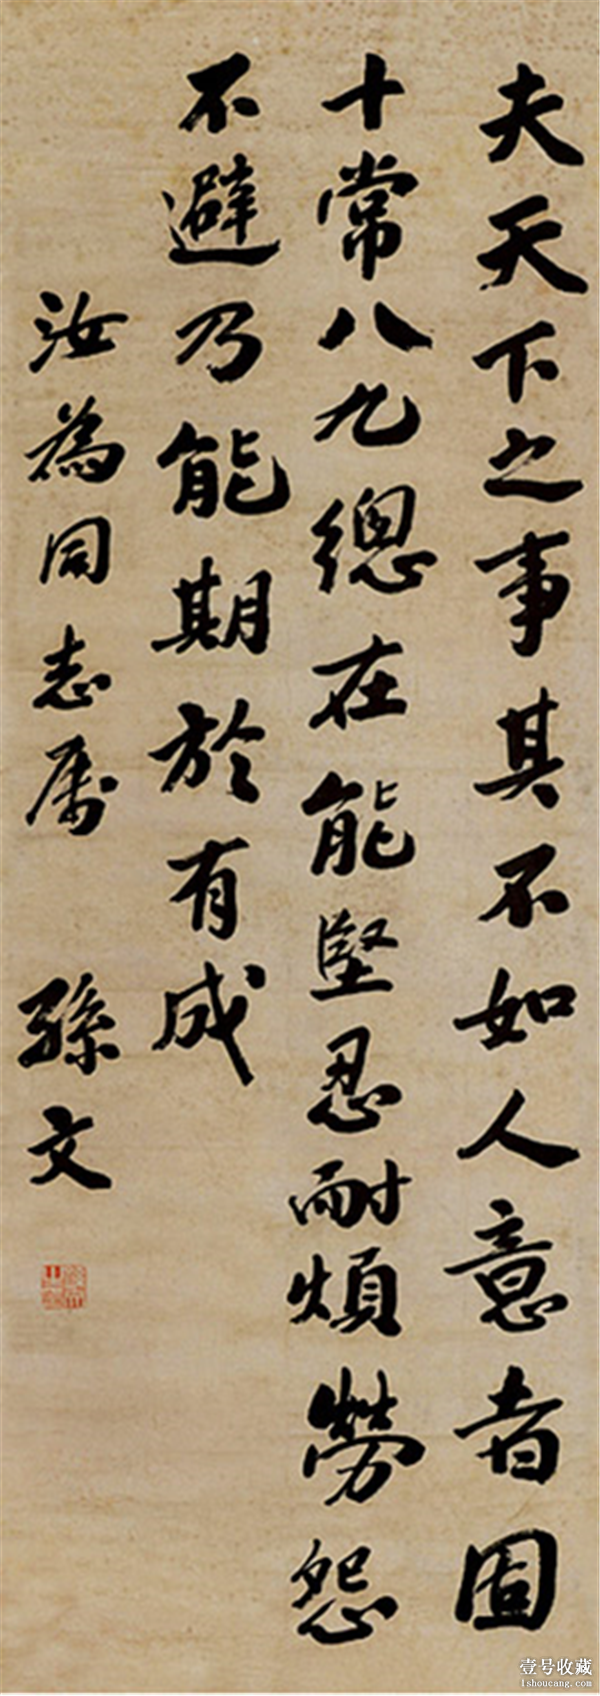 夫天下之事其不如人意者固
十常八九總在能堅忍耐煩勞怨
不避乃能期於有成
汝為同志屬
孫文
壹号收藏
1shoucang.com